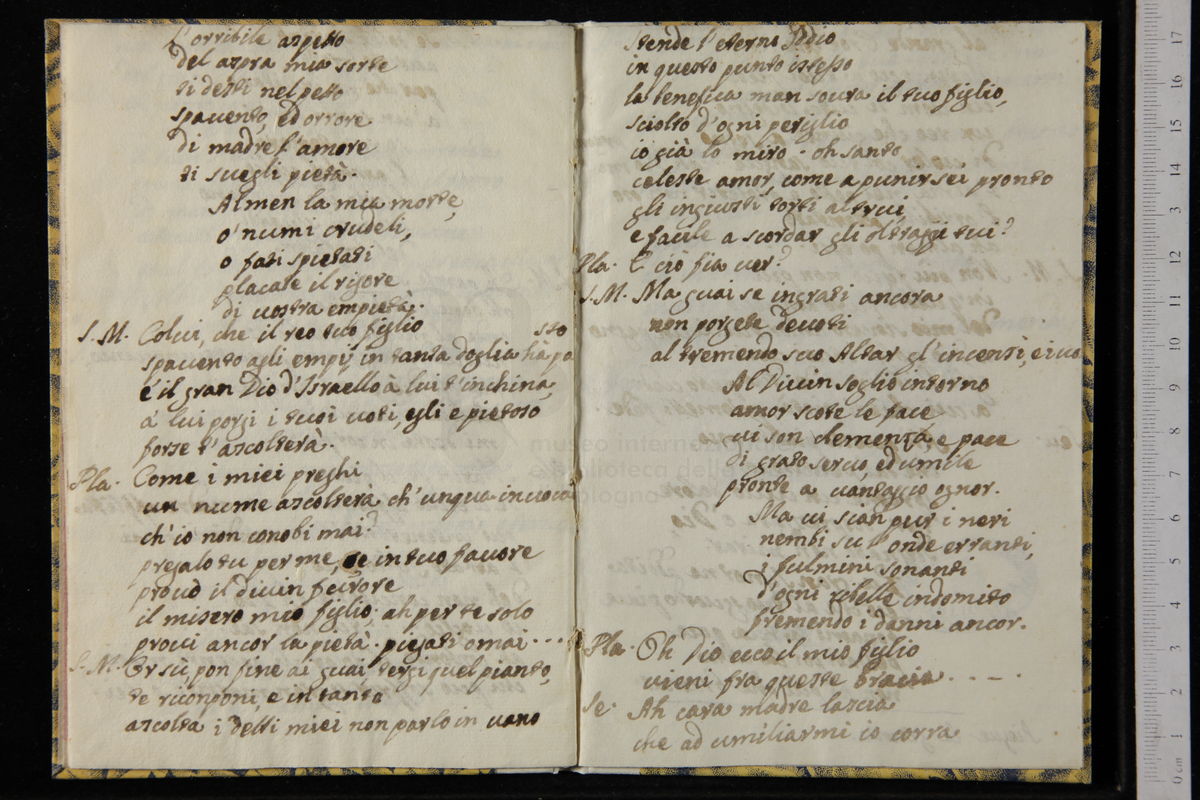 L'orribile aspetto
del aspra mia sorte
ti desti nel petto
spavento, ed orrore
di madre l'amore
ti svegli pietà.
Almen la mia morte,
o' numi crudeli,
o fati spietati
placate il rigore
di vostra empietà.
S. M. Colui, che il reo tuo figlio
sto
spavento agli empij in tanta doglia hà po
è il gran Dio d'Israello à lui t'inchina,
à lui porgi i tuoi voti, egli e pietoso
forse t'ascolterà.
Pla. Come i miei preghi
un nume ascolterà ch'unqua invocai
ch'io non conobi mai?
pregalo tu per me, se in tuo favore
provò il divin fervore
il misero mio figlio, ah per te solo
provi ancor la pietà. piegati omai....
S. M. Or sù pon fine ai guai tergi quel pianto,
te riconponi, e in tanto
ascolta i detti miei non parlo in vano
stende l'eterno Iddio
in questo punto istesso
la benefica man sovra il tuo figlio,
sciolto d'ogni periglio
io già lo miro. oh santo
celeste amor, come a punir sei pronto
gli ingiusti torti altrui
e facile a scordar gli oltraggi tui?
Pla. E ciò fia ver?
S. M. Ma guai se ingrati ancora
non porgete devoti
al tremendo suo Altar gl'incensi, e i voti
Al Divin soglio intorno
amor scote le face
vi son clemenza e pace
di grato servo, ed umile
pronte a vantaggio ognor.
Ma vi sian pur i neri
nembi su l'onde erranti,
i fulmini sonanti
d'ogni ribelle indomito
fremendo i danni ancor.
Pla. Oh Dio ecco il mio figlio
vieni fra queste bracia.....
Se. Ah cara madre lascia
che ad umiliarmi io corra
museo internaz
e biblioteca della
bologna